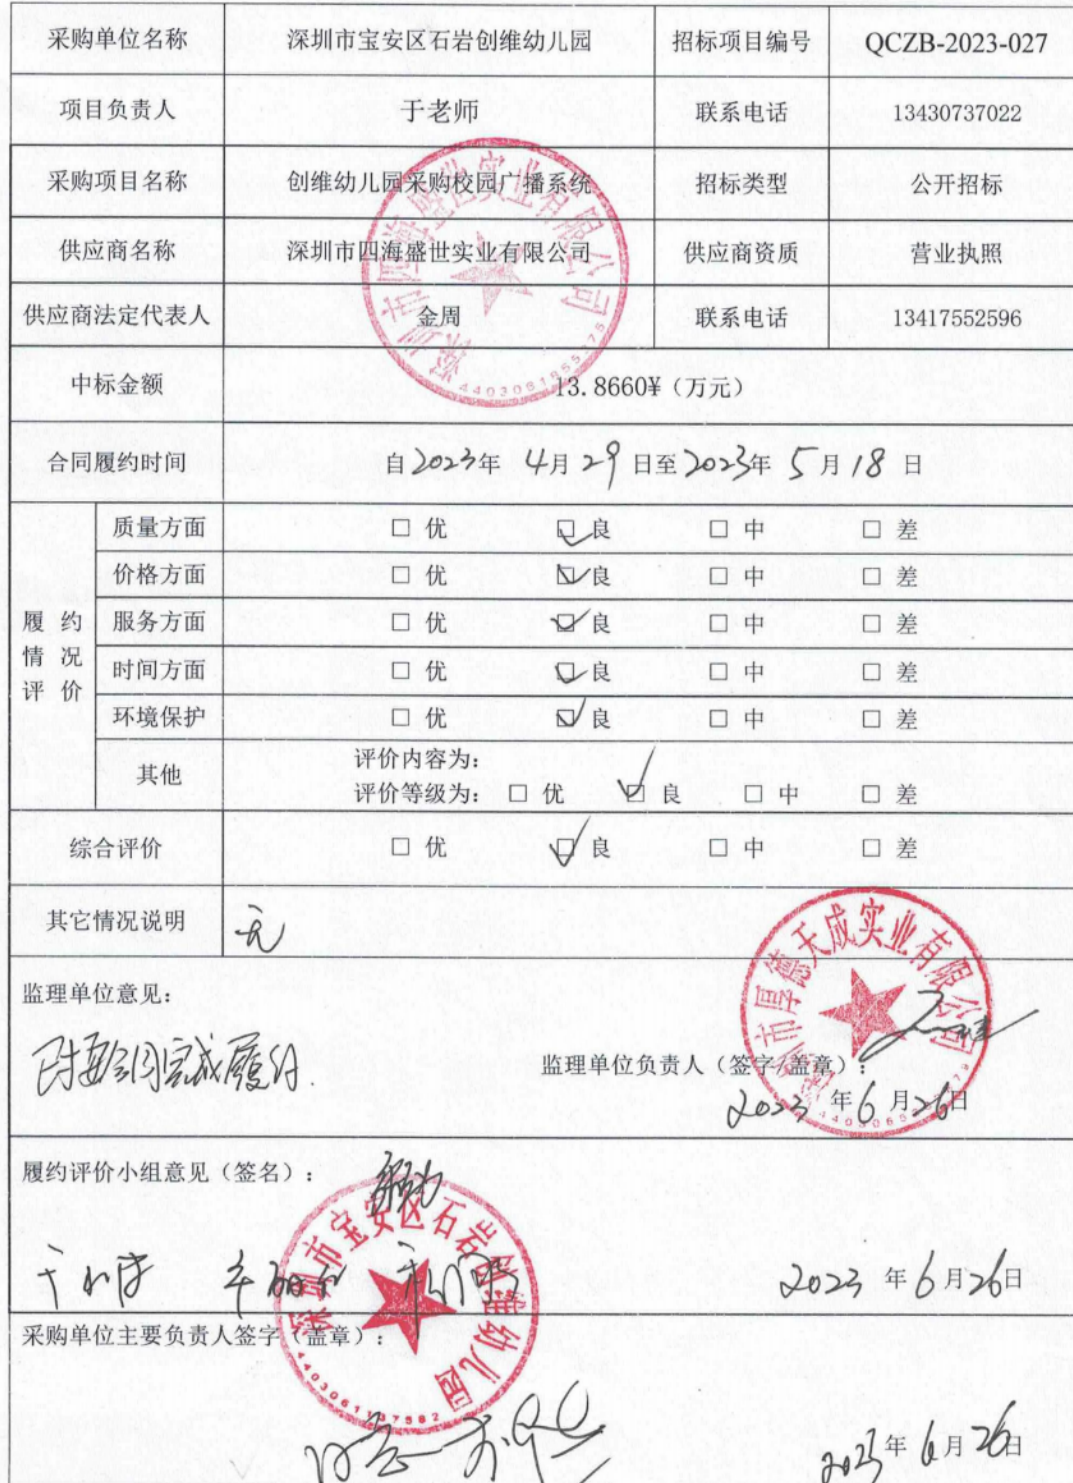 采购单位名称 深圳市宝安区石岩创维幼儿园 招标项目编号 QCZB-2023-027
项目负责人 于老师 联系电话 13430737022
采购项目名称 创维幼儿园采购校园广播系统 招标类型 公开招标
供应商名称 深圳市四海盛世实业有限公司 供应商资质 营业执照
供应商法定代表人 金周 联系电话 13417552596
中标金额 13.8660¥（万元）
合同履约时间 自2023年 4月 29 日至2023年 5月 18 日
履约情况评价
质量方面 □ 优 ☑ 良 □ 中 □ 差
价格方面 □ 优 ☑ 良 □ 中 □ 差
服务方面 □ 优 ☑ 良 □ 中 □ 差
时间方面 □ 优 ☑ 良 □ 中 □ 差
环境保护 □ 优 ☑ 良 □ 中 □ 差
其他 评价内容为：
评价等级为： □ 优 ☑ 良 □ 中 □ 差
综合评价 □ 优 ☑ 良 □ 中 □ 差
其它情况说明 无
监理单位意见：
合同完成履约.
监理单位负责人（签字/盖章）：
2023 年 6 月 26日
履约评价小组意见（签名）：
2023 年 6 月 26日
采购单位主要负责人签字（盖章）：
2023 年 6 月 26日
深圳市四海盛世实业有限公司
深圳市厚德天成实业有限公司
深圳市宝安区石岩创维幼儿园